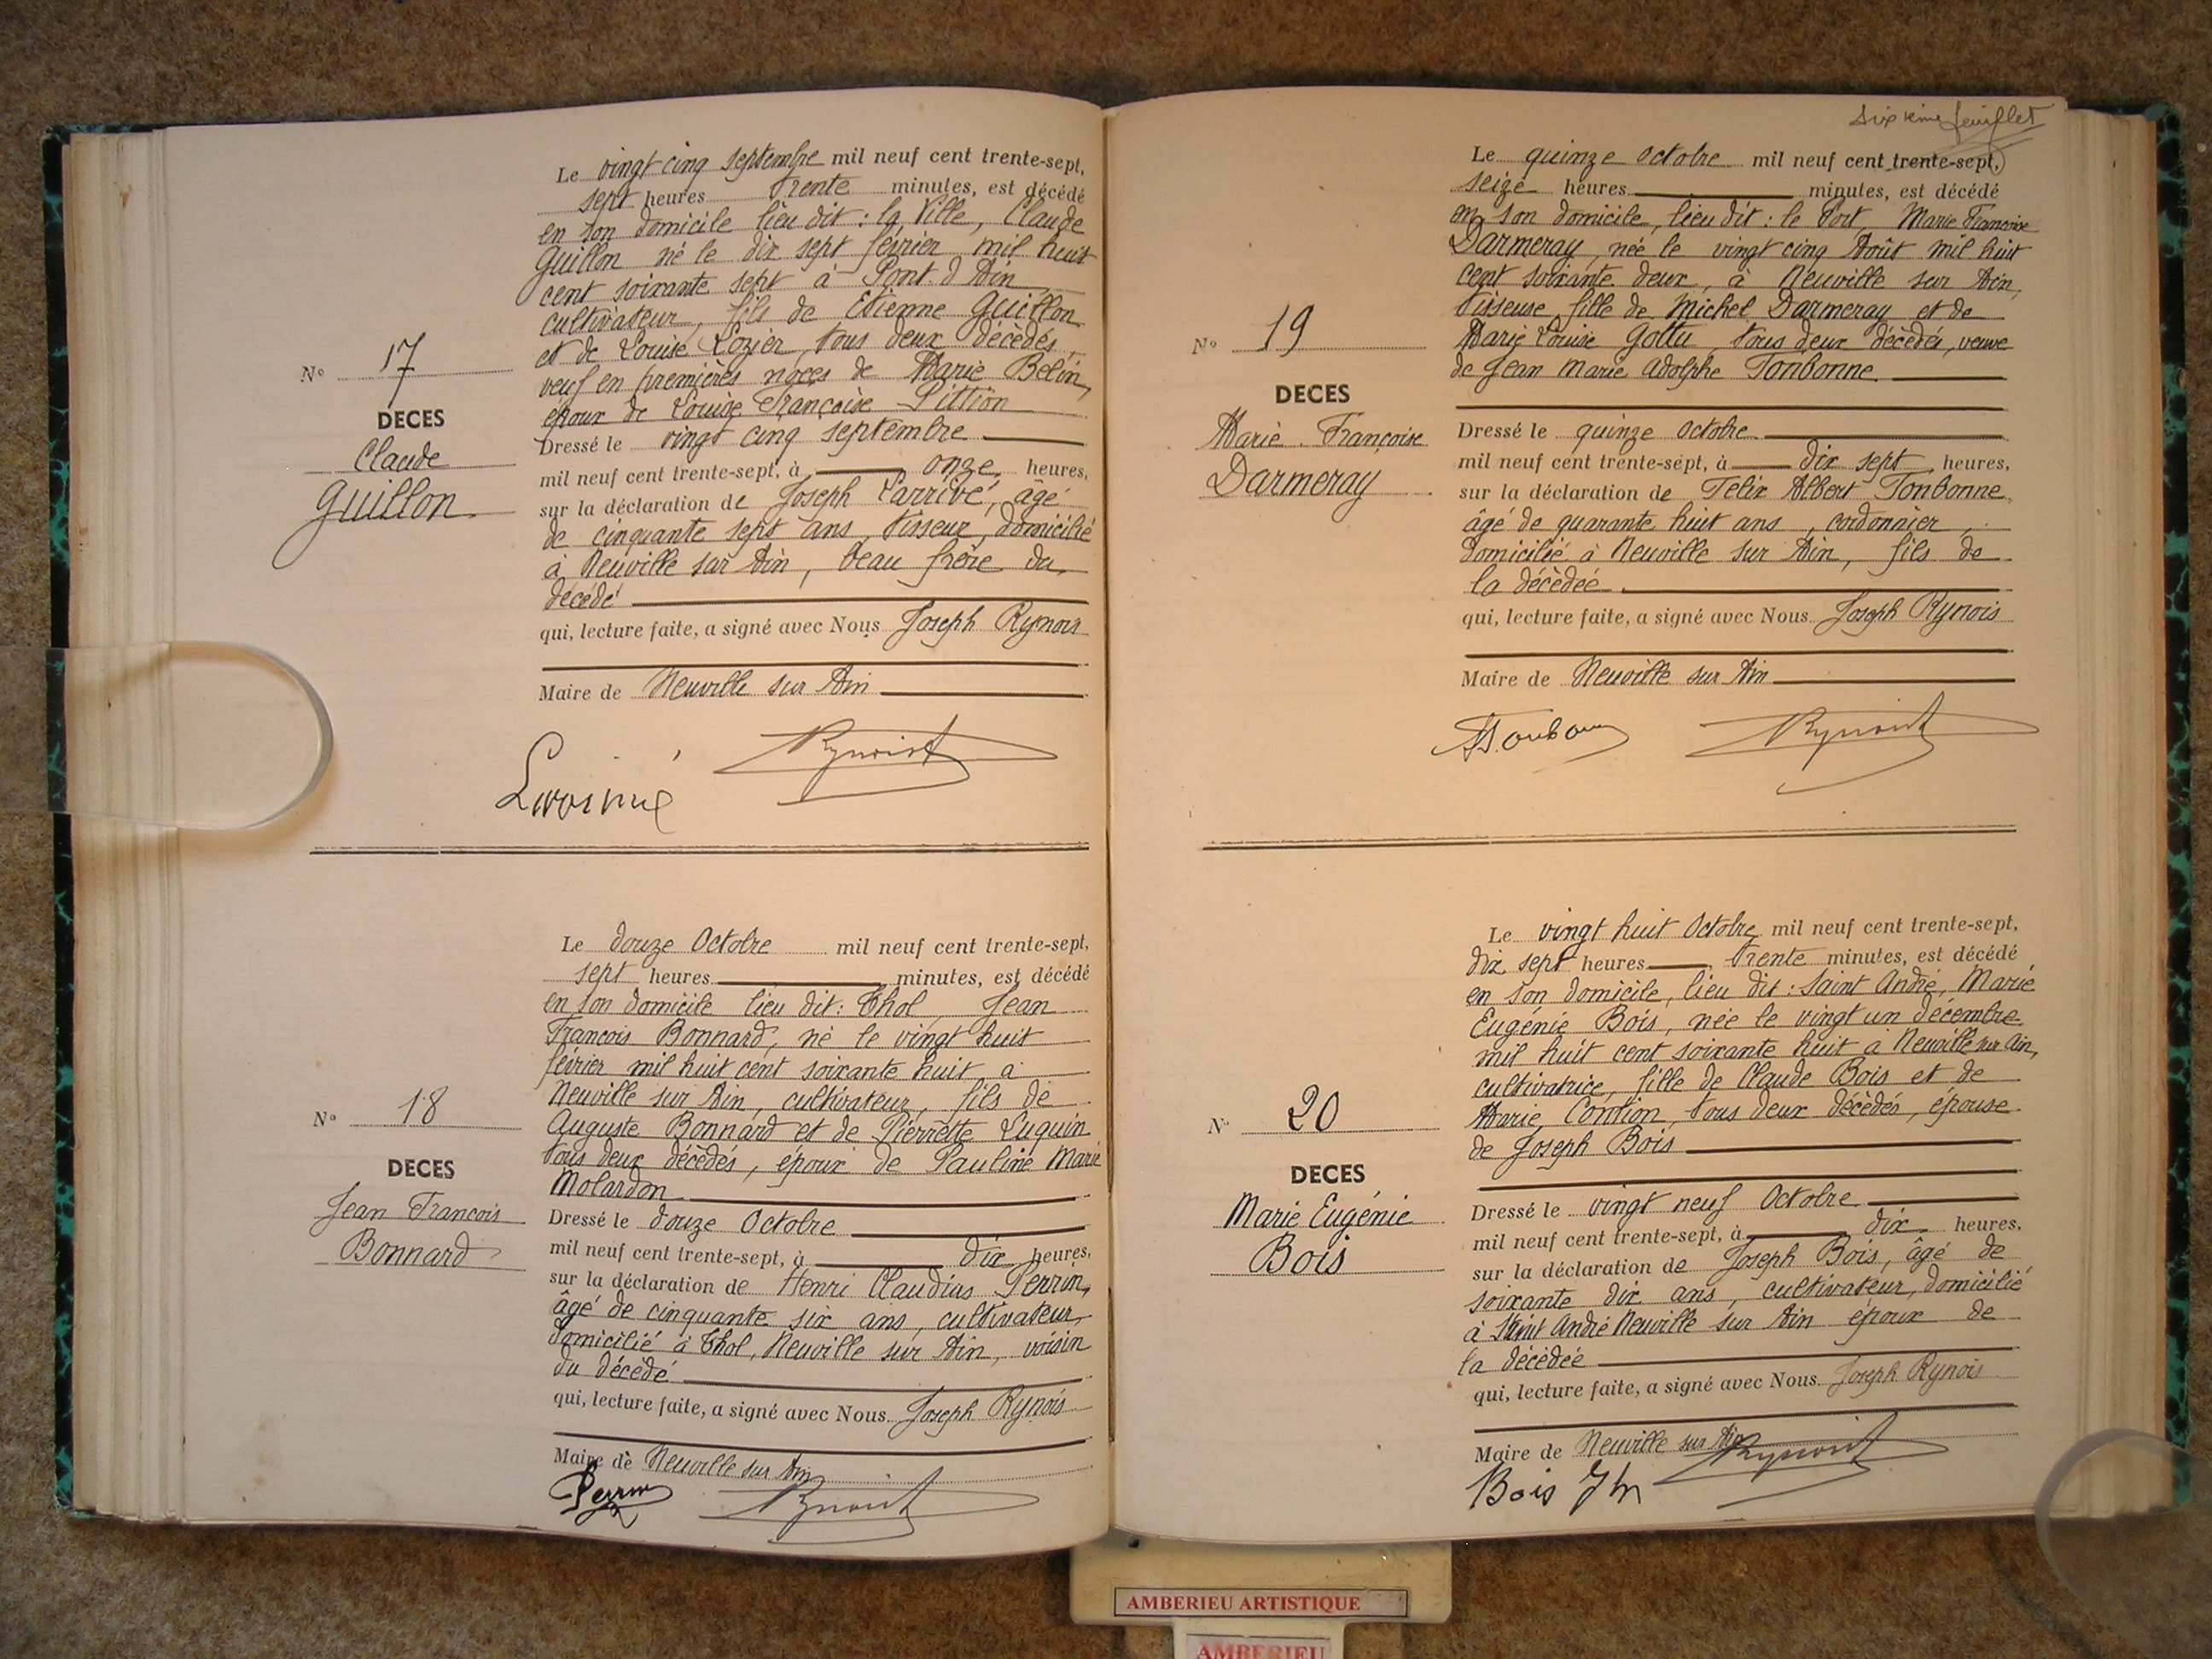 Le vingt cinq septembre mil neuf cent trente-sept,
sept heures trente minutes, est décédé
en son domicile lieu dit : la Ville, Claude
Guillon né le dix sept février mil huit
cent soixante sept à Pont d'Ain
cultivateur, fils de Etienne Guillon
et de Louise Lozier, tous deux décèdés,
veuf en premières noces de Marie Belin,
époux de Louise Françoise Pittion
N° 17
DECES
Claude
Guillon
Dressé le vingt cinq septembre
mil neuf cent trente-sept, à onze heures,
sur la déclaration de Joseph Larrivé, âgé
de cinquante sept ans, tisseur, domicilié
à Neuville sur Ain, beau frère du
décédé
qui, lecture faite, a signé avec Nous Joseph Rynois
Maire de Neuville sur Ain
Rynoist
Le douze Octobre mil neuf cent trente-sept,
sept heures minutes, est décédé
en son domicile lieu dit : Thol, Jean
François Bonnard, né le vingt huit
février mil huit cent soixante huit à
Neuville sur Ain, cultivateur, fils de
Auguste Bonnard et de Pierrette Luquin
tous deux décèdés, époux de Pauline Marie
Molardon
N° 18
DECES
Jean François
Bonnard
Dressé le douze Octobre
mil neuf cent trente-sept, à dix heures,
sur la déclaration de Henri Claudius Perrin,
âgé de cinquante six ans, cultivateur,
domicilié à Thol, Neuville sur Ain, voisin
du décédé
qui, lecture faite, a signé avec Nous Joseph Rynois
Maire de Neuville sur Ain
Perrin Rynoist
Sixième feuillet
Le quinze Octobre mil neuf cent trente-sept,
seize heures minutes, est décédé
en son domicile, lieu dit : le Port, Marie Françoise
Darmeray, née le vingt cinq Août mil huit
cent soixante deux, à Neuville sur Ain,
tisseuse fille de Michel Darmeray et de
Marie Louise Gottu, tous deux décèdés, veuve
de Jean Marie Adolphe Tonbonne
N° 19
DECES
Marie Françoise
Darmeray
Dressé le quinze Octobre
mil neuf cent trente-sept, à dix sept heures,
sur la déclaration de Félix Albert Tonbonne
âgé de quarante huit ans, cordonnier,
domicilié à Neuville sur Ain, fils de
la décèdée
qui, lecture faite, a signé avec Nous Joseph Rynois
Maire de Neuville sur Ain
Rynoist
Le vingt huit Octobre mil neuf cent trente-sept,
dix sept heures trente minutes, est décédé
en son domicile, lieu dit : Saint André, Marie
Eugénie Bois, née le vingt un décembre
mil huit cent soixante huit à Neuville sur Ain,
cultivatrice, fille de Claude Bois et de
Marie Contion, tous deux décèdés, épouse
de Joseph Bois
N° 20
DECES
Marie Eugénie
Bois
Dressé le vingt neuf Octobre
mil neuf cent trente-sept, à dix heures,
sur la déclaration de Joseph Bois, âgé de
soixante dix ans, cultivateur, domicilié
à Saint André Neuville sur Ain époux de
la décèdée
qui, lecture faite, a signé avec Nous Joseph Rynois
Maire de Neuville sur Ain
Bois Jh Rynoist
AMBERIEU ARTISTIQUE
AMBERIEU